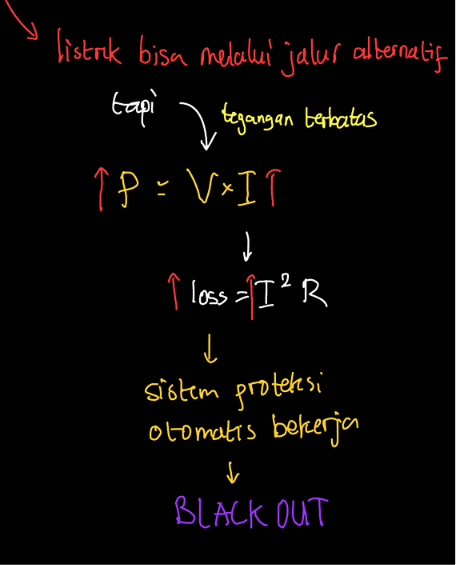 listrik bisa melalui jalur alternatif
tapi
tegangan terbatas
↑ P = V × I ↑
↓
↑ loss = ↑ I² R
↓
sistem proteksi
otomatis bekerja
↓
BLACK OUT